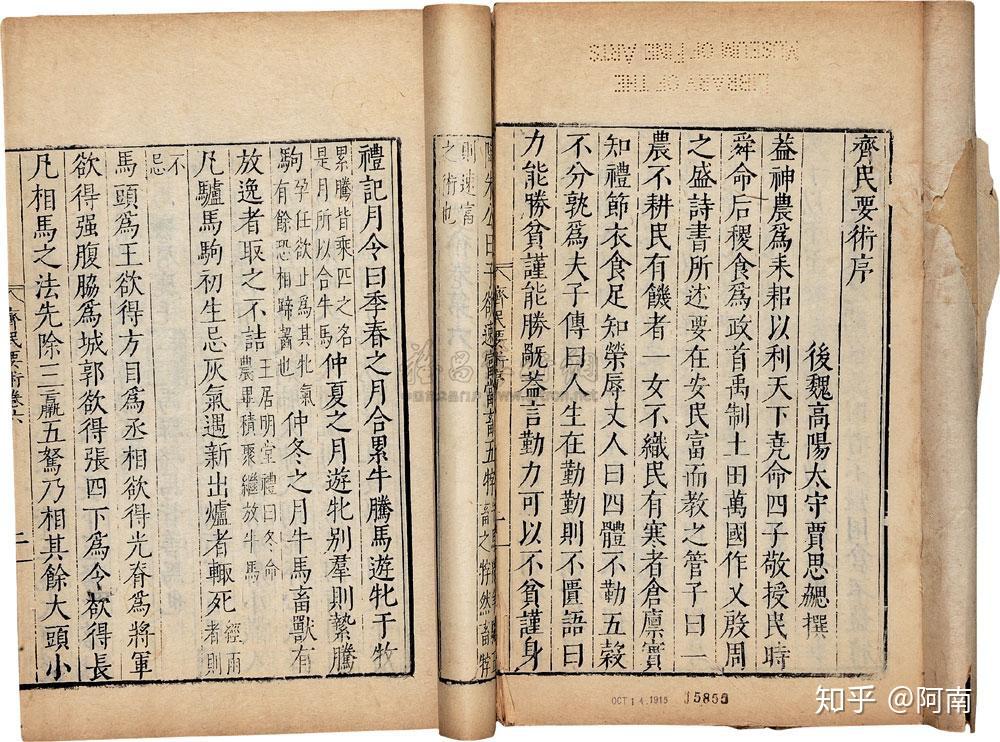 齊民要術序
後魏高陽太守賈思勰撰
葢神農爲耒耜以利天下堯命四子敬授民時
舜命后稷食爲政首禹制土田萬國作乂殷周
之盛詩書所述要在安民富而教之管子曰一
農不耕民有饑者一女不織民有寒者倉廪實
知禮節衣食足知榮辱丈人曰四體不勤五穀
不分孰爲夫子傳曰人生在勤勤則不匱語曰
力能勝貧謹能勝禍葢言勤力可以不貧謹身
齊民要術序
一
朱公曰子欲速富當畜五牸
畜之牸然畜牸
則速富
之術也
禮記月令曰季春之月合累牛騰馬遊牝于牧
累騰皆乘匹之名
是月所以合牛馬
仲夏之月遊牝别羣則縶騰
駒
孕任欲止爲其牝氣
有餘恐相蹄齧也
仲冬之月牛馬畜獸有
放逸者取之不詰
王居明堂禮曰冬命
農畢積聚繼放牛馬
凡驢馬駒初生忌灰氣遇新出爐者輙死
經雨
者則
不
忌
馬頭爲王欲得方目爲丞相欲得光脊爲將軍
欲得强腹脇爲城郭欲得張四下爲令欲得長
凡相馬之法先除三羸五駑乃相其餘大頭小
齊民要術卷六
二
LIBRARY OF THE
MUSEUM OF FINE ARTS
OCT 14.1915
15855
知乎 @阿南